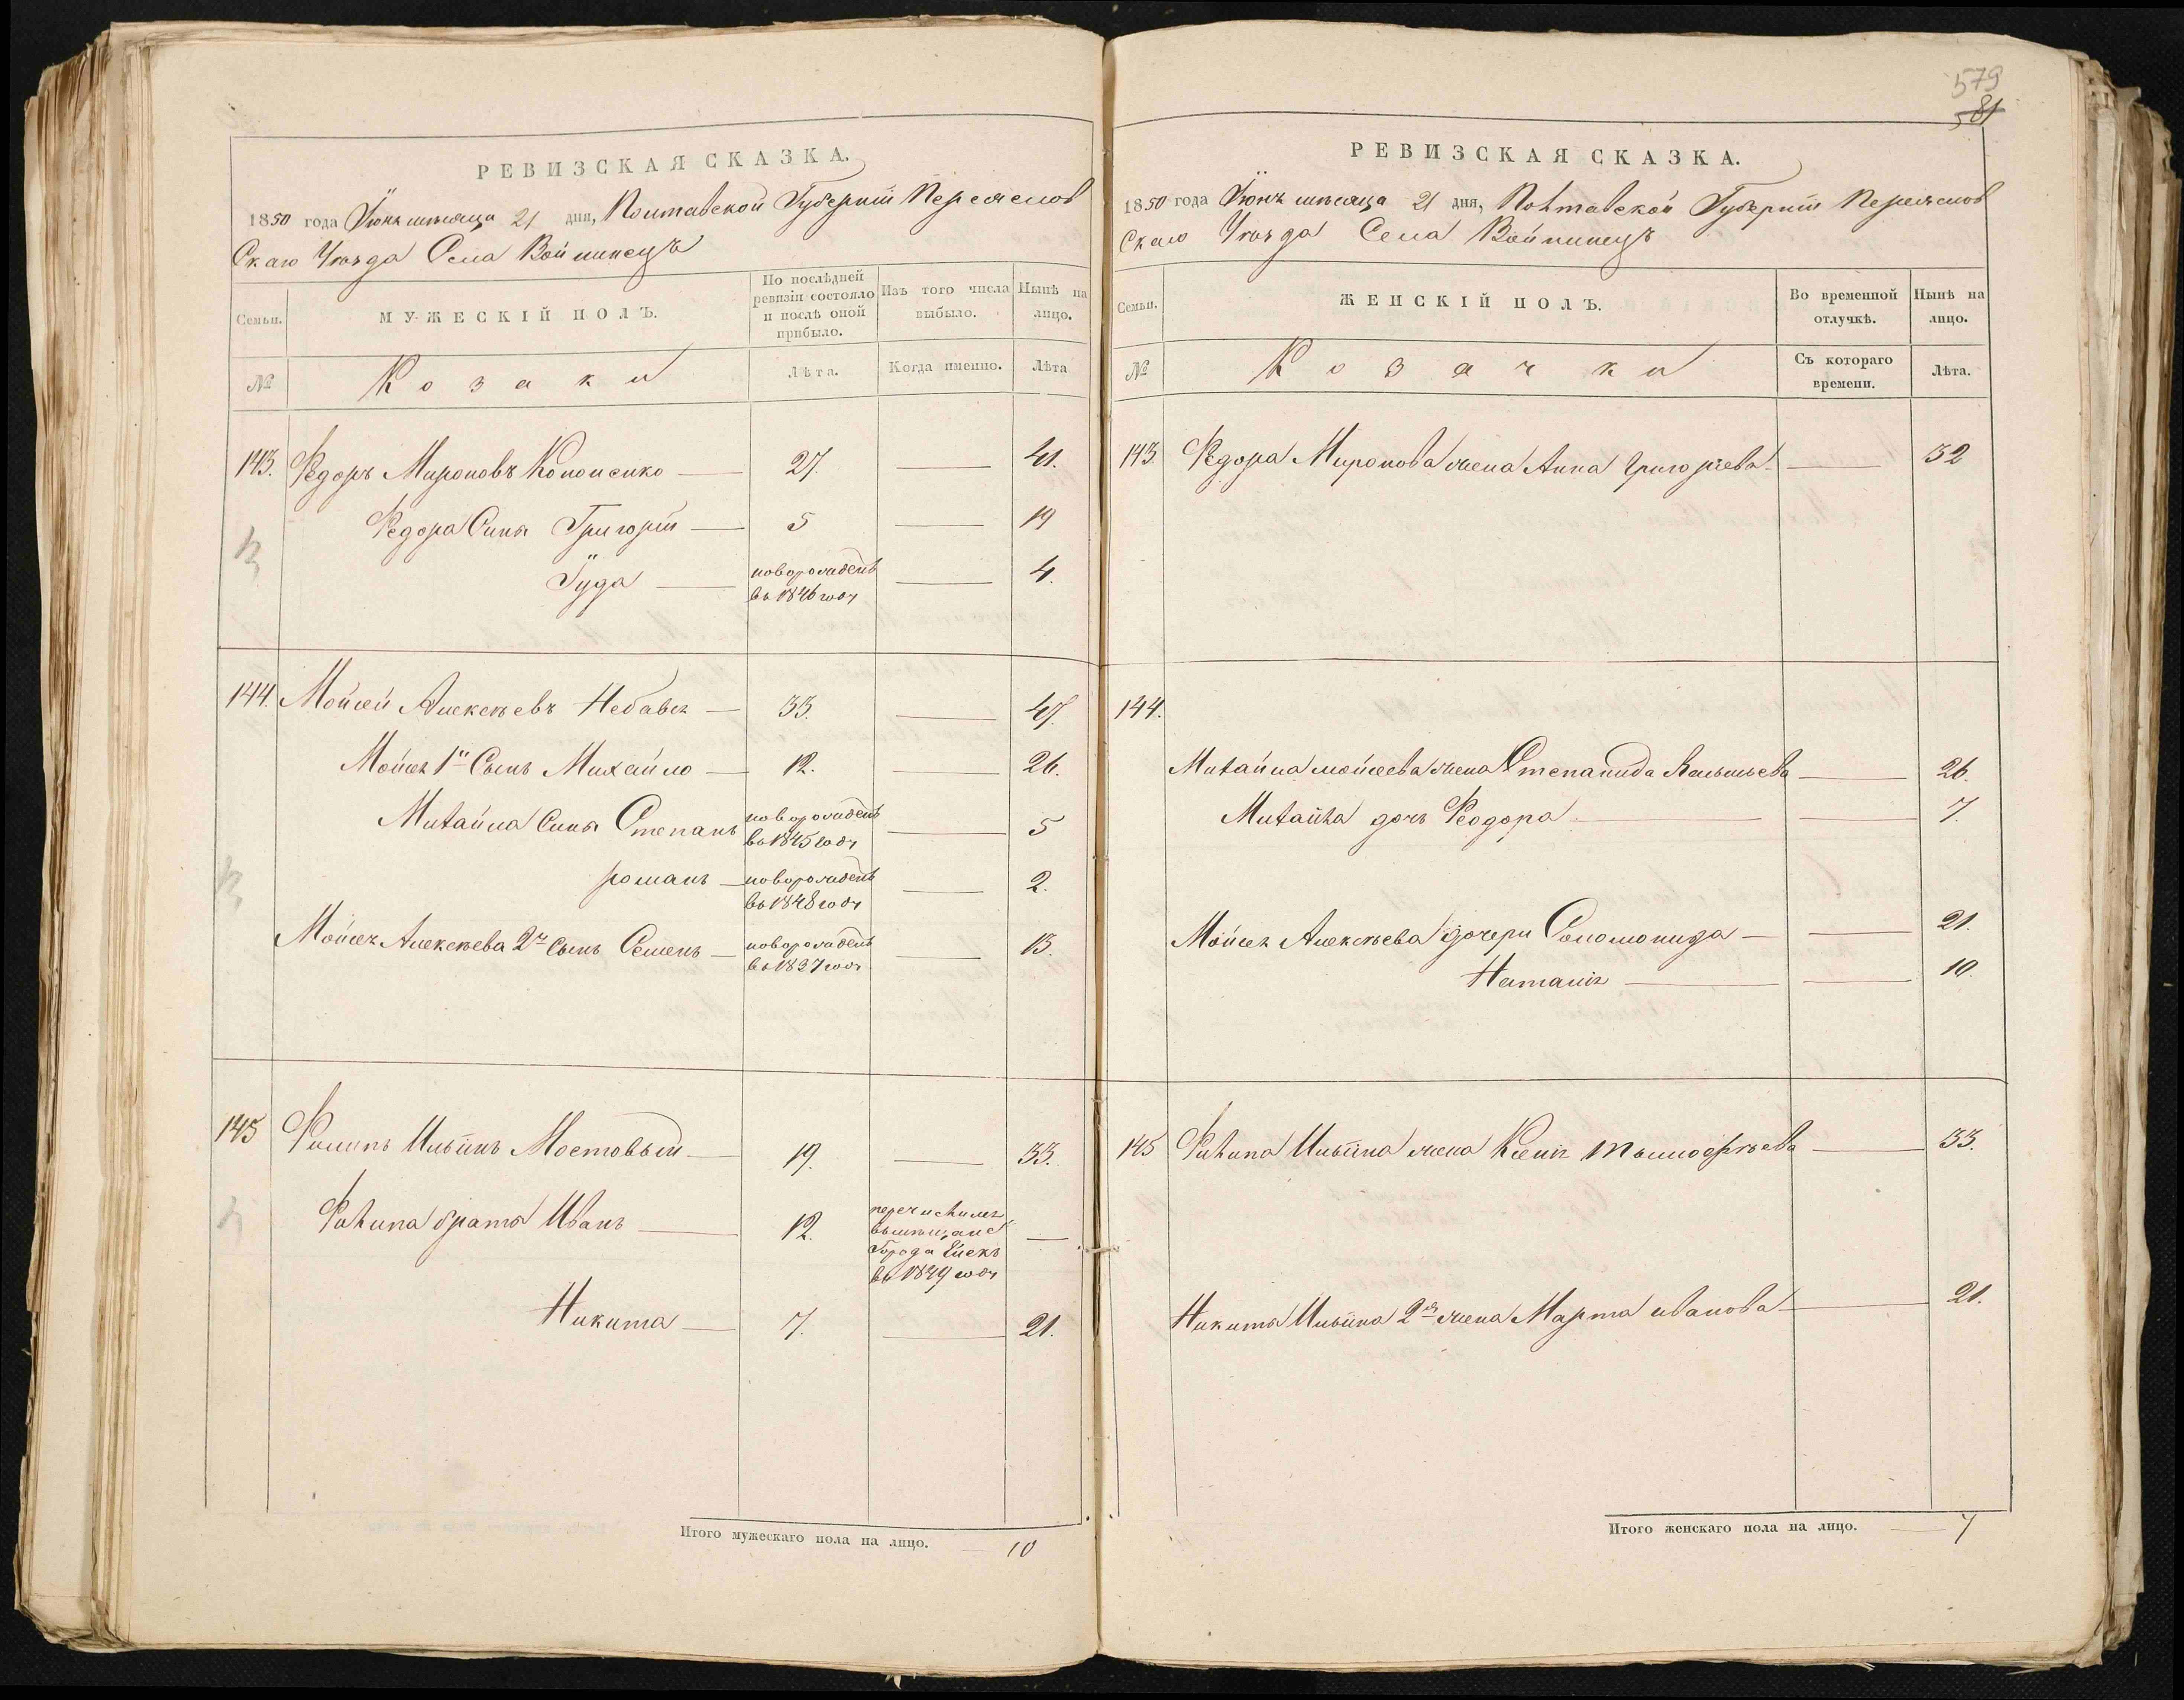 РЕВИЗСКАЯ СКАЗКА.
1850 года Іюня мѣсяца 21 дня, Полтавской Губерніи Переяслов
Скаго Уѣзда Села Войтинецъ
Семьи.
МУЖЕСКІЙ ПОЛЪ.
По послѣдней ревизіи состояло и послѣ оной прибыло.
Изъ того числа выбыло.
Нынѣ на лицо.
№
Козаки
Лѣта.
Когда именно.
Лѣта
143. Федоръ Мироновъ Кононенко — 27. — 41.
Федора Сыны Григорій — 5 — 19
Іуда — новорожденъ въ 1846 году — 4.
144. Мойсей Алексѣевъ Небався — 33. — 47.
Мойсея 1й Сынъ Михайло — 12. — 26.
Михайла Сыны Степанъ новорожденъ въ 1845 году — 5
романъ — новорожденъ въ 1848 году — 2.
Мойсея Алексѣева 2й Сынъ Семенъ — новорожденъ въ 1837 году — 13.
145 Филипъ Ильинъ Мостовый — 19. — 33.
Филипа братья Иванъ — 12. перечисленъ въ мѣщане Города Ейскъ въ 1849 году —
Никита — 7. — 21.
Итого мужескаго пола на лицо. — 10
579
581
РЕВИЗСКАЯ СКАЗКА.
1850 года Іюня мѣсяца 21 дня, Полтавской Губерніи Переяслов
Скаго Уѣзда Села Войтинецъ
Семьи.
ЖЕНСКІЙ ПОЛЪ.
Во временной отлучкѣ.
Нынѣ на лицо.
№
Козачки
Съ котораго времени.
Лѣта.
143 Федора Миронова жена Анна Григорьева — 32
144.
Михайла мойсеева жена Степанида Васильева — 26.
Михайла дочь Федора — 7.
Мойсея Алексѣева дочери Соломонида — 21.
Наталія — 10.
145 Филипа Ильина жена Ксенія Тимофѣева — 33.
Никиты Ильина 2я жена Марта иванова — 21.
Итого женскаго пола на лицо. — 7